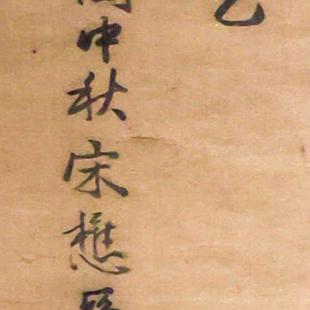 乙
中秋宋懋